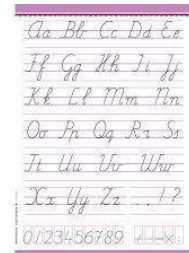 Aa Bb Cc Dd Ee
Ff Gg Hh Ii Jj
Kk Ll Mm Nn
Oo Pp Qq Rr Ss
Tt Uu Vv Ww
Xx Yy Zz . . ! ?
0123456789 + - × :